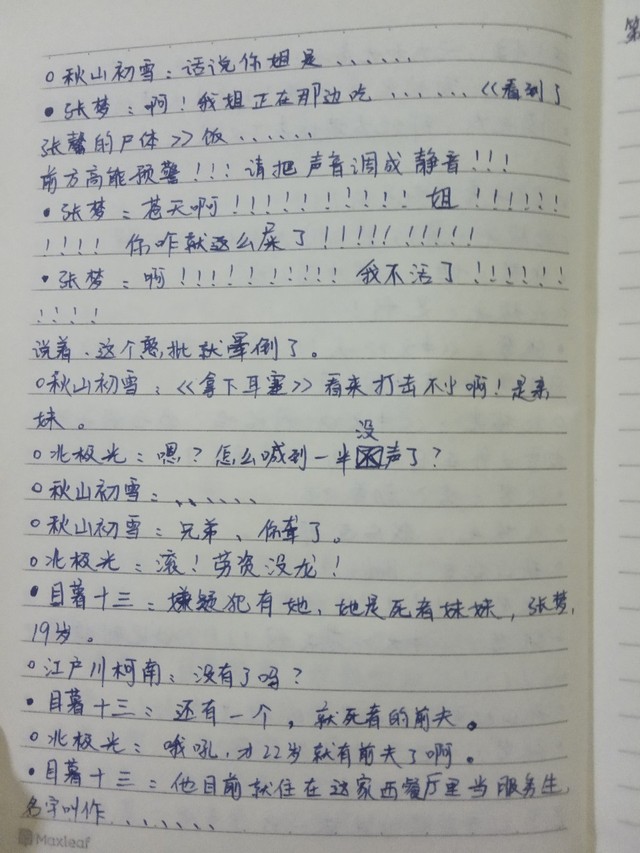 ○秋山初雪：话说你姐是......
•张梦：啊！我姐正在那边吃......《看到了
张馨的尸体》饭......
前方高能预警！！！请把声音调成静音！！！
•张梦：苍天啊！！！！！！！！！！姐！！！！！！
！！！！你咋就这么屎了！！！！！！！！！！
•张梦：啊！！！！！！！！！！我不活了！！！！！！
！！！！
说着、这个憨批就晕倒了。
○秋山初雪：《拿下耳塞》看来打击不少啊！是亲
妹。
○北极光：嗯？怎么喊到一半没声了？
○秋山初雪：......
○秋山初雪：兄弟、你聋了。
○北极光：滚！劳资没龙！
•目暮十三：嫌疑犯有她、她是死者妹妹，张梦，
19岁。
○江户川柯南：没有了吗？
•目暮十三：还有一个，就死者的前夫。
○北极光：哦吼，才22岁就有前夫了啊。
•目暮十三：他目前就住在这家西餐厅里当服务生，
名字叫作......
Maxleaf